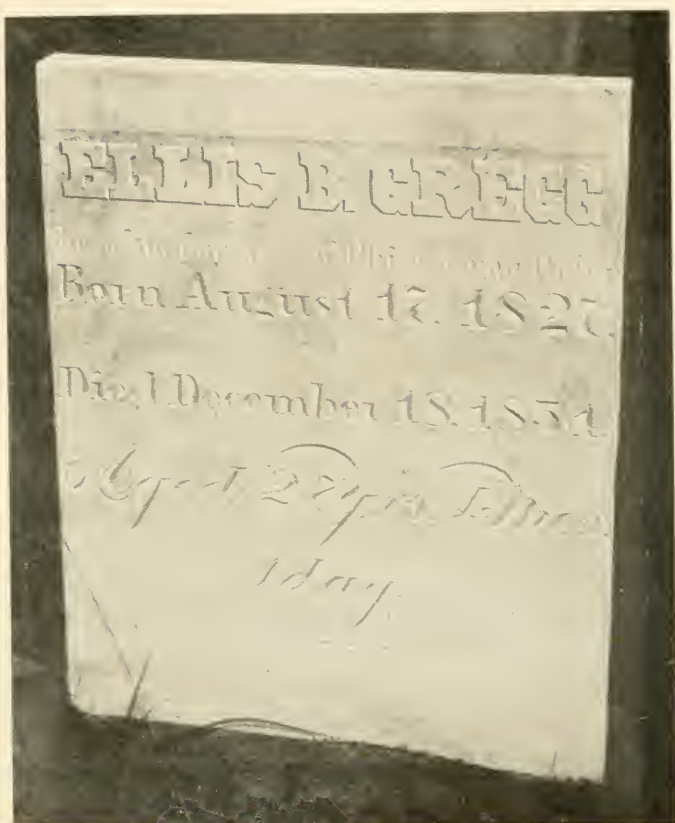 ELLIS B. GREGG
Born August 17. 1827.
Died December 18. 1854.
Aged 27 yrs. 4 mos.
1 day